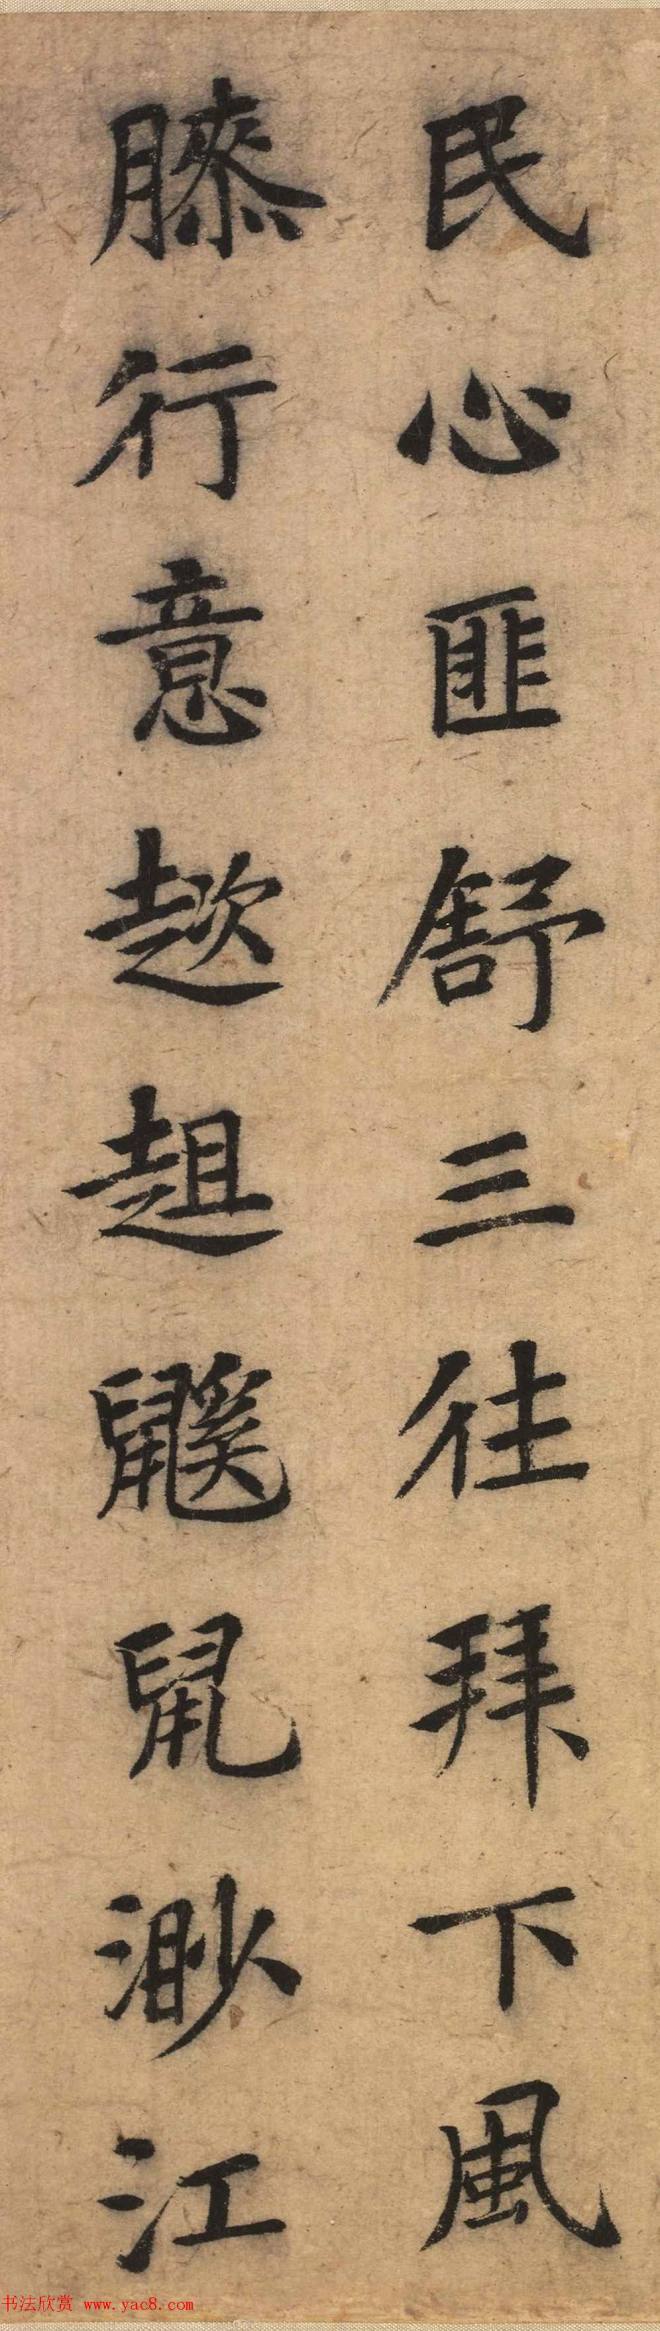 民心匪舒三往拜下風
膝行意趑趄鼷鼠渺江
书法欣赏 www.yac8.com